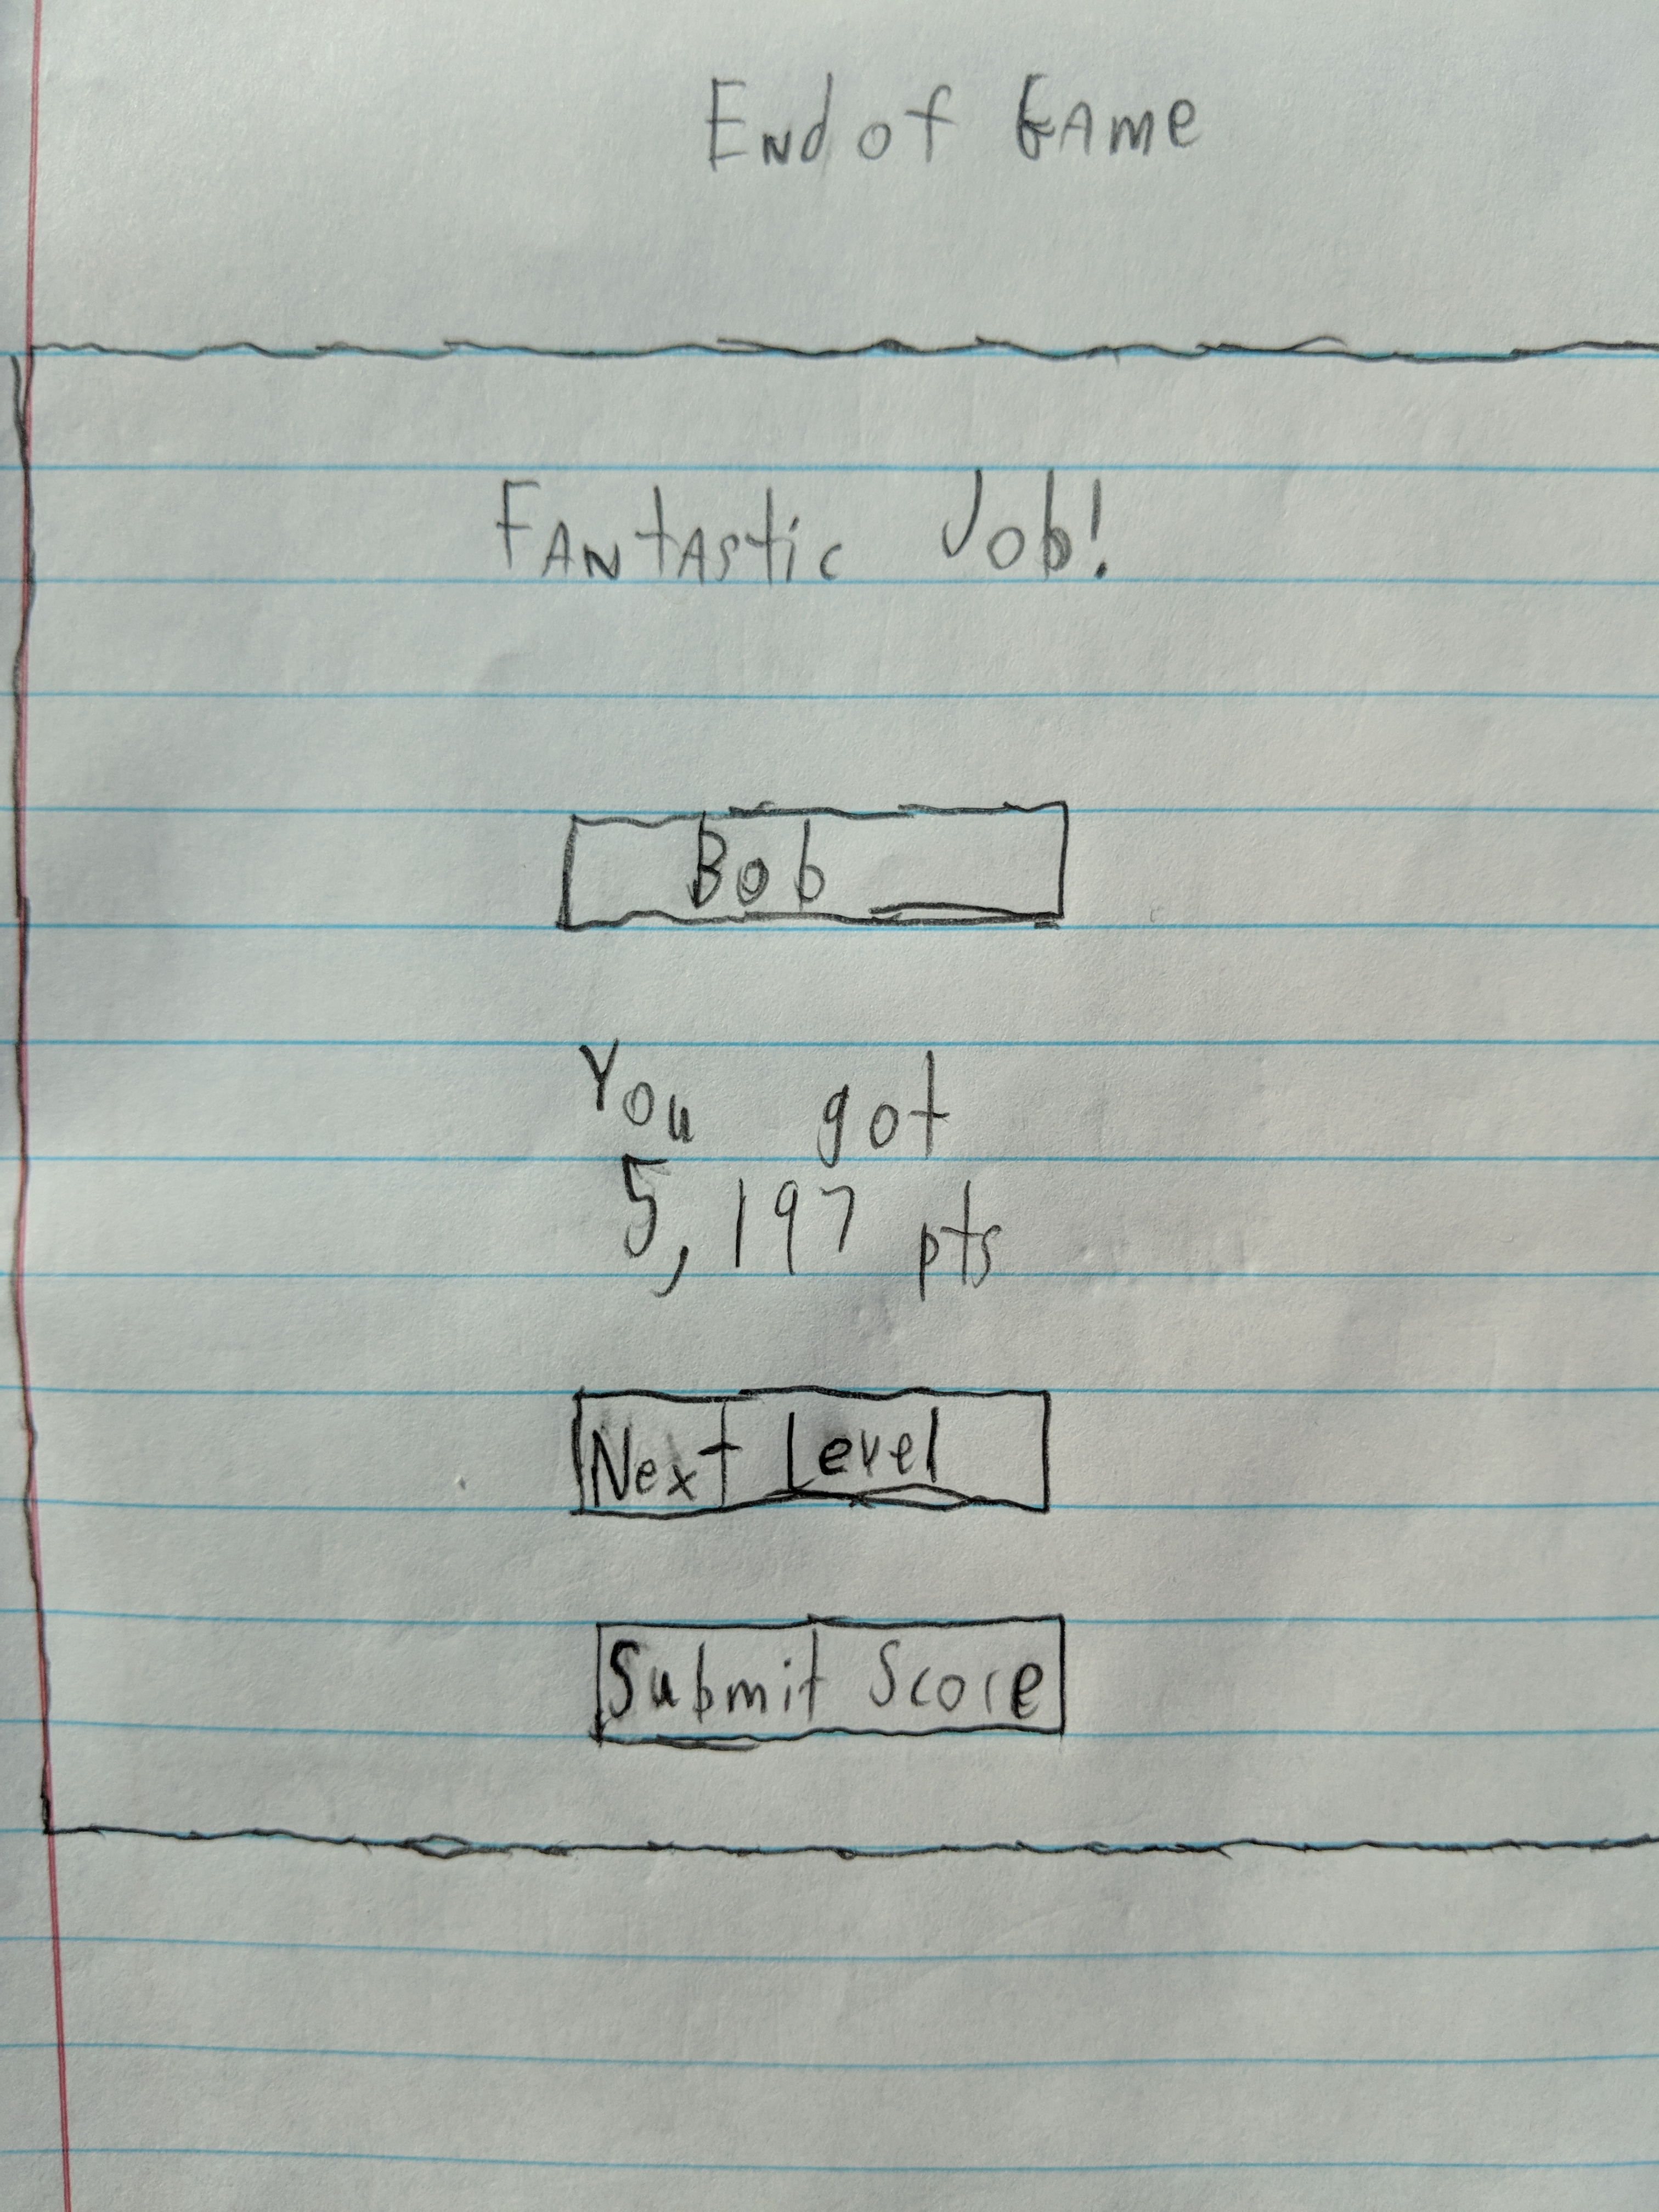 End of Game
Fantastic Job!
Bob
You got
5,197 pts
Next Level
Submit Score